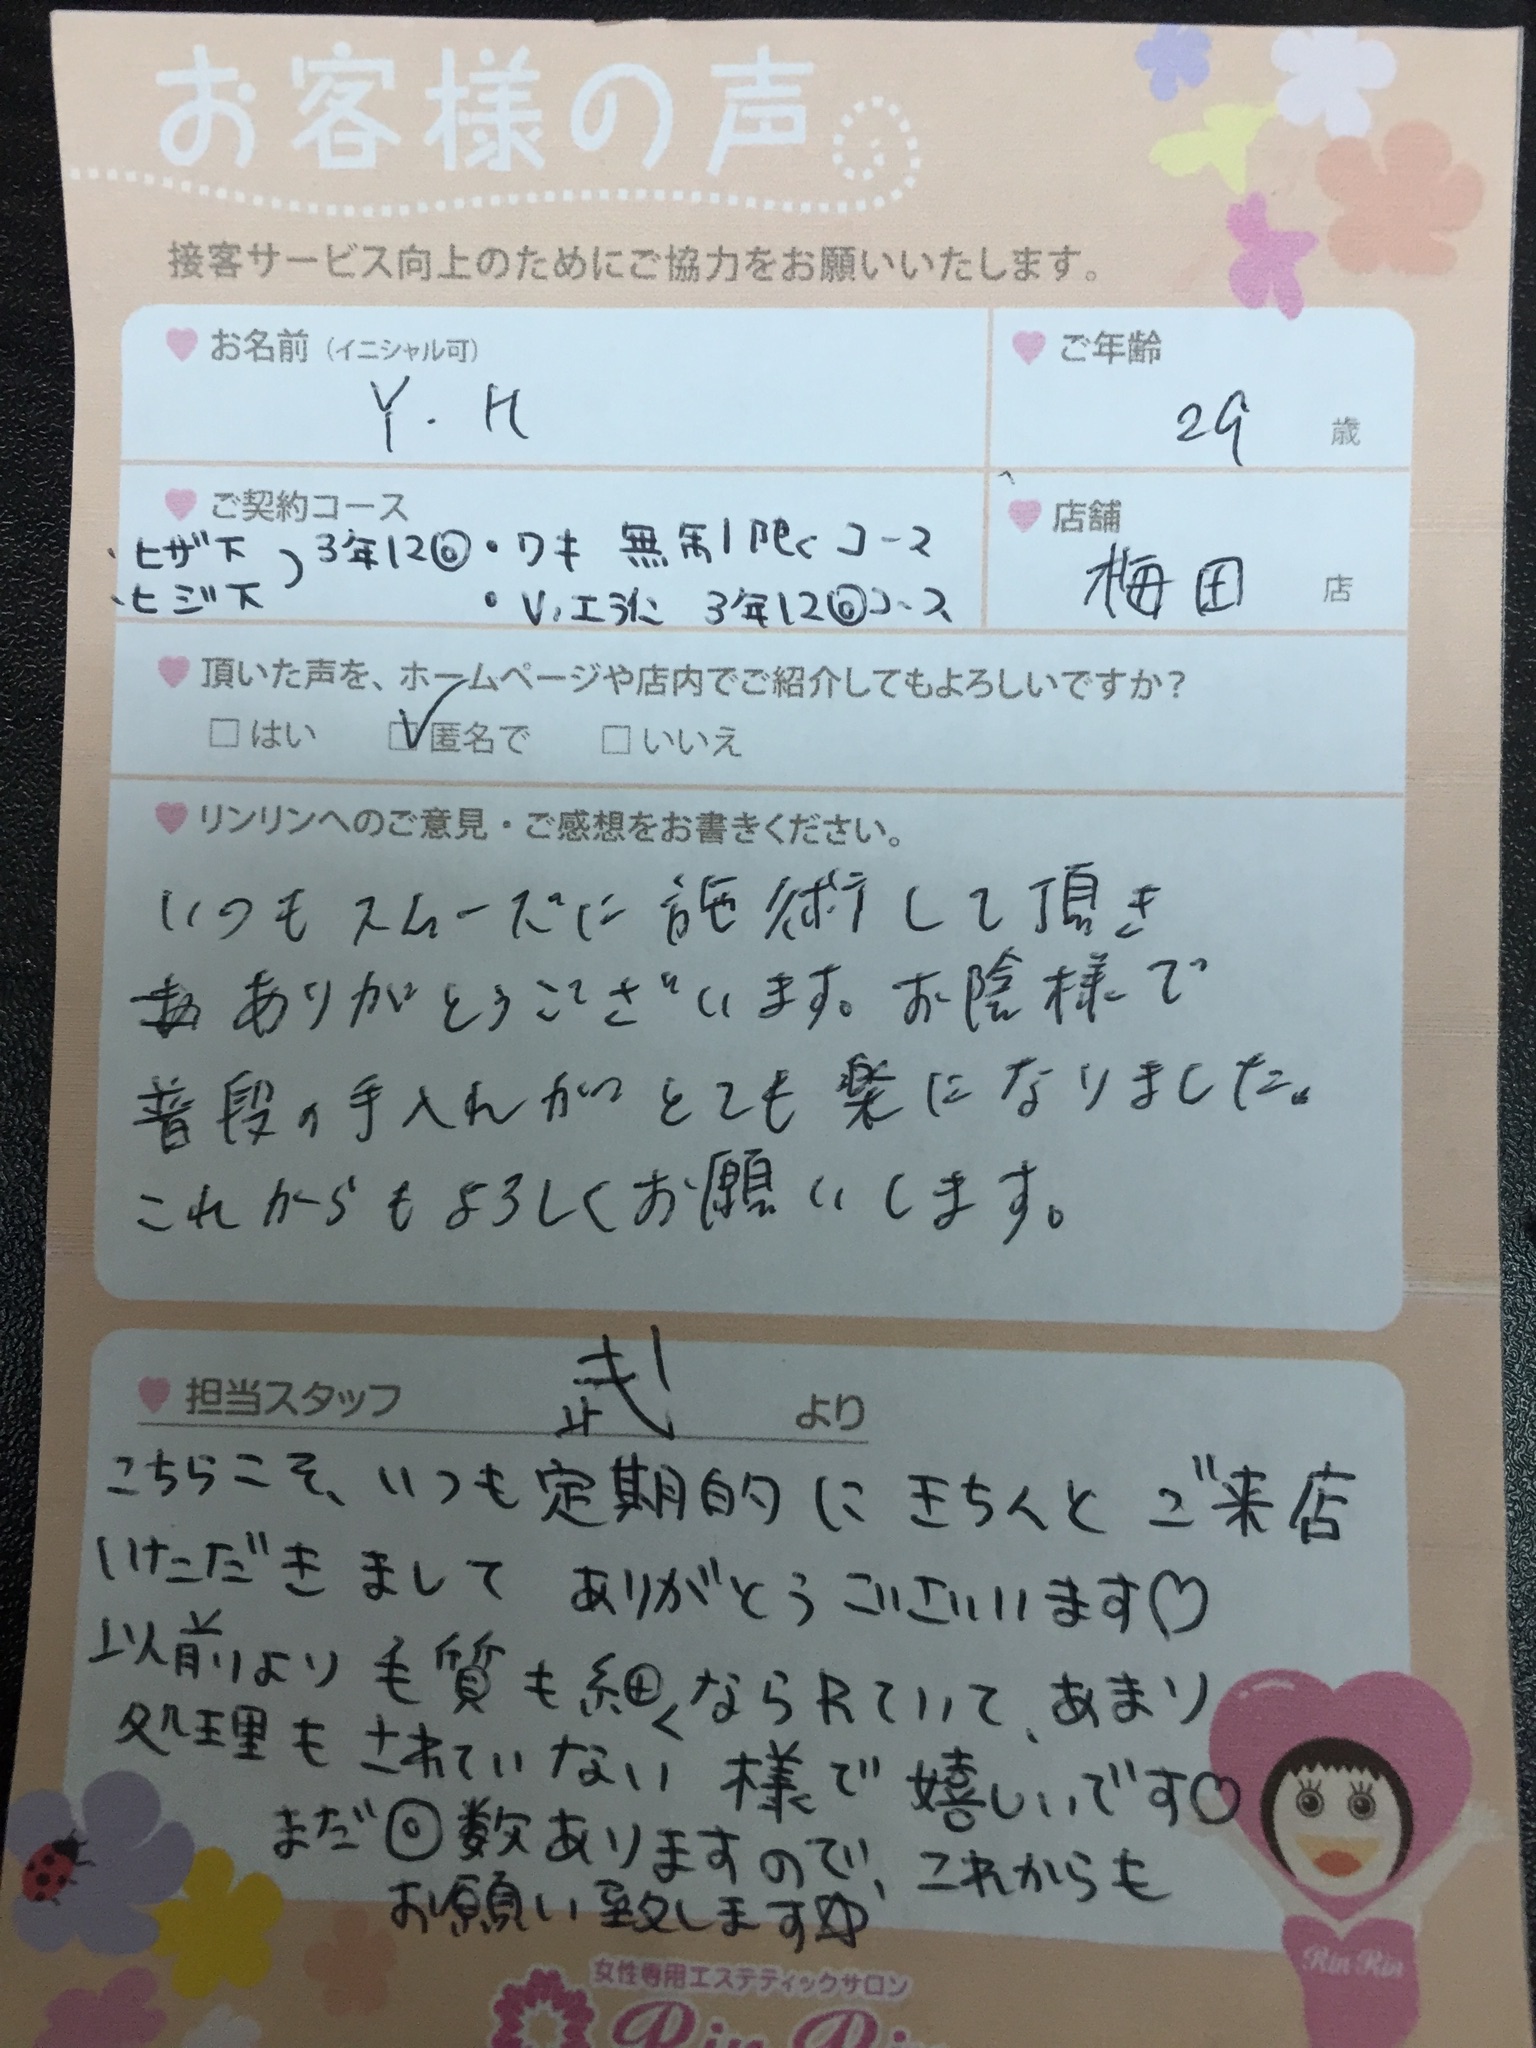 お客様の声
接客サービス向上のためにご協力をお願いいたします。
お名前(イニシャル可)
Y.H
ご年齢
29 歳
ご契約コース
・ヒザ下
・ヒジ下
3年12回
・ワキ 無制限コース
・V. 3年12回コース
店舗
梅田 店
頂いた声を、ホームページや店内でご紹介してもよろしいですか?
□はい ☑匿名で □いいえ
リンリンへのご意見・ご感想をお書きください。
いつもスムーズに施術して頂き
ありがとうございます。お陰様で
普段の手入れがとても楽になりました。
これからもよろしくお願いします。
担当スタッフ 武 より
こちらこそ、いつも定期的にきちんとご来店
いただきまして ありがとうございます♡
以前より毛質も細くなられていて、あまり
処理もされていない様で嬉しいです♡
まだ回数ありますので、これからも
お願い致します☆
Rin Rin
女性専用エステティックサロン
Rin Rin